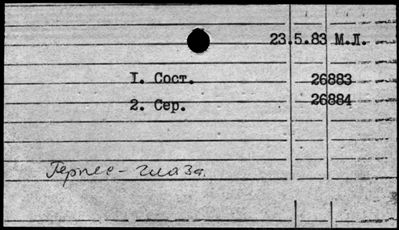 23.5.83 М.Л.
1. Сост. 26883
2. Сер. 26884
Герпес - глаза.